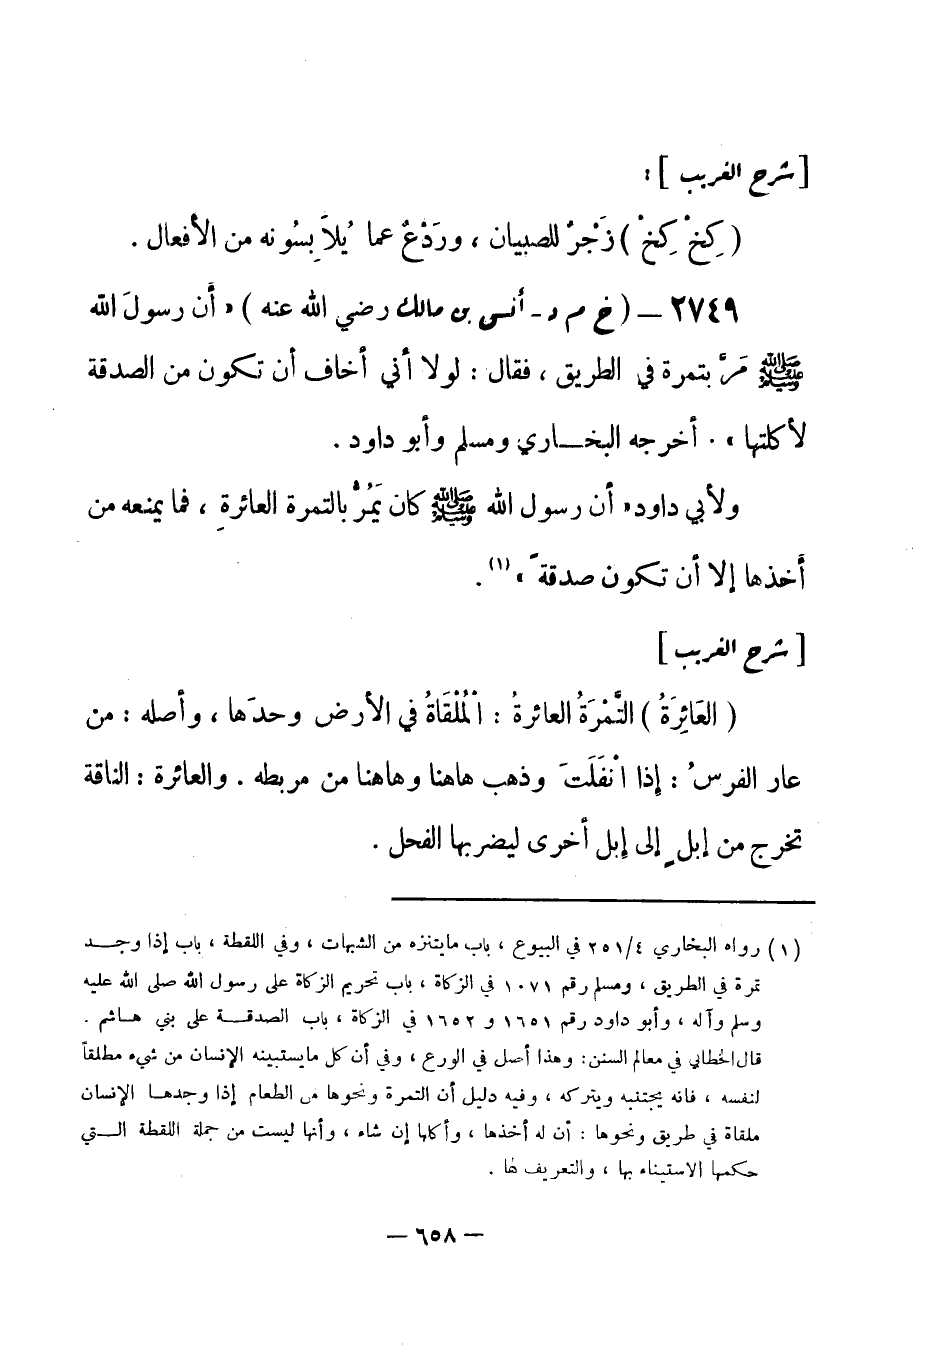 [ شرح الغريب ] :
( كِخْ كِخْ ) زَجْرٌ للصبيان ، ورَدْعٌ عما يُلاَبِسُونه من الأفعال .
٢٧٤٩ – ( خ م د - أنس بن مالك رضي الله عنه ) « أن رسولَ الله
ﷺ مَرَّ بتمرة في الطريق ، فقال : لولا أني أخاف أن تكون من الصدقة
لأكلتها » . أخرجه البخاري ومسلم وأبو داود .
ولأبي داود « أن رسول الله ﷺ كان يَمُرُّ بالتمرة العائرةِ ، فما يمنعه من
أخذها إلا أن تكون صدقةً » (١) .
[ شرح الغريب ]
( العَائِرَةُ ) التَّمْرَةُ العائرةُ : المُلْقَاةُ في الأرض وحدَها ، وأصله : من
عار الفرسُ : إذا انْفَلَتَ وذهب هاهنا وهاهنا من مربطه . والعائرة : الناقة
تخرج من إبلٍ إلى إبل أخرى ليضربها الفحل .
(١) رواه البخاري ٢٥١/٤ في البيوع ، باب مايتنزه من الشبهات ، وفي اللقطة ، باب إذا وجد
تمرة في الطريق ، ومسلم رقم ١٠٧١ في الزكاة ، باب تحريم الزكاة على رسول الله صلى الله عليه
وسلم وآله ، وأبو داود رقم ١٦٥١ و ١٦٥٢ في الزكاة ، باب الصدقة على بني هاشم .
قال الخطابي في معالم السنن : وهذا أصل في الورع ، وفي أن كل مايستبينه الإنسان من شيء مطلقاً
لنفسه ، فانه يجتنبه ويتركه ، وفيه دليل أن التمرة ونحوها من الطعام إذا وجدها الإنسان
ملقاة في طريق ونحوها : أن له أخذها ، وأكلها إن شاء ، وأنها ليست من جملة اللقطة التي
حكمها الاستيناء بها ، والتعريف لها .
– ٦٥٨ –